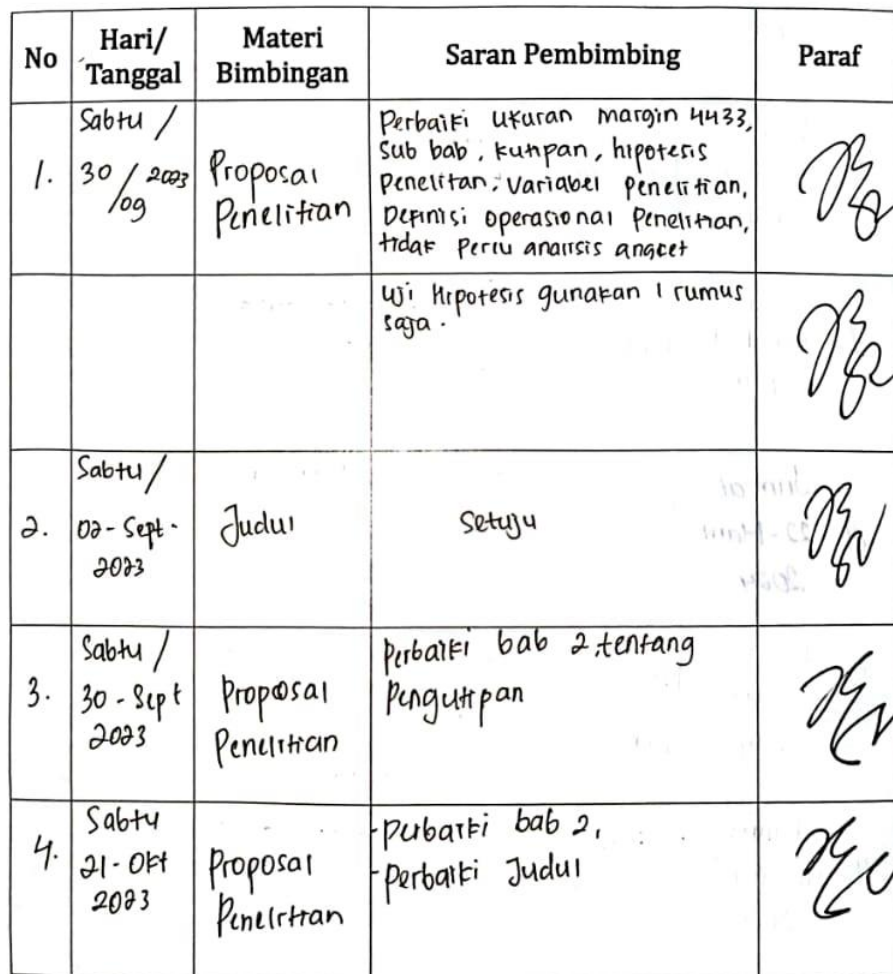 No
Hari/
Tanggal
Materi
Bimbingan
Saran Pembimbing
Paraf
1.
Sabtu /
30 / 2023
/09
Proposal
Penelitian
Perbaiki ukuran margin 4433,
Sub bab, kutipan, hipotesis
Penelitan, Variabel penelitian,
Definisi operasional Penelitian,
tidak Perlu analisis angket
Uji Hipotesis gunakan 1 rumus
saja.
2.
Sabtu /
02 - Sept -
2023
Judul
Setuju
3.
Sabtu /
30 - Sept
2023
Proposal
Penelitian
Perbaiki bab 2, tentang
Pengutipan
4.
Sabtu
21 - Okt
2023
Proposal
Penelitian
- Perbaiki bab 2,
- Perbaiki Judul